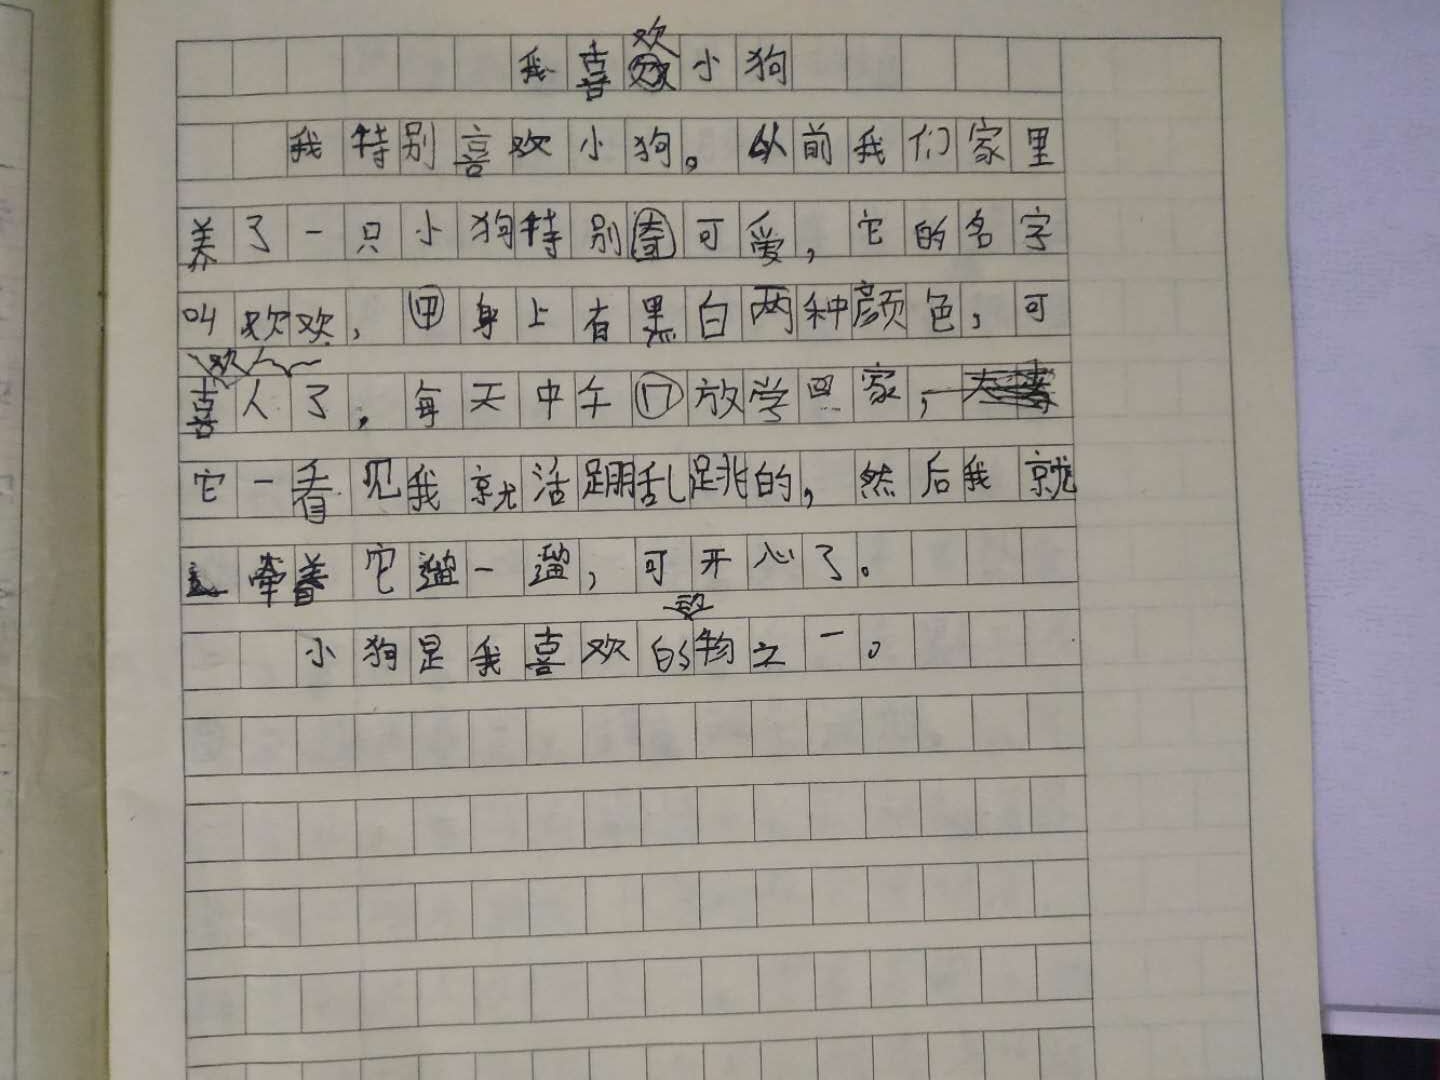 我喜欢小狗
我特别喜欢小狗。从前我们家里
养了一只小狗特别可爱，它的名字
叫欢欢，身上有黑白两种颜色，可
喜欢人了，每天中午放学回家，
它一看见我就活蹦乱跳的，然后我就
牵着它遛一遛，可开心了。
小狗是我喜欢的动物之一。